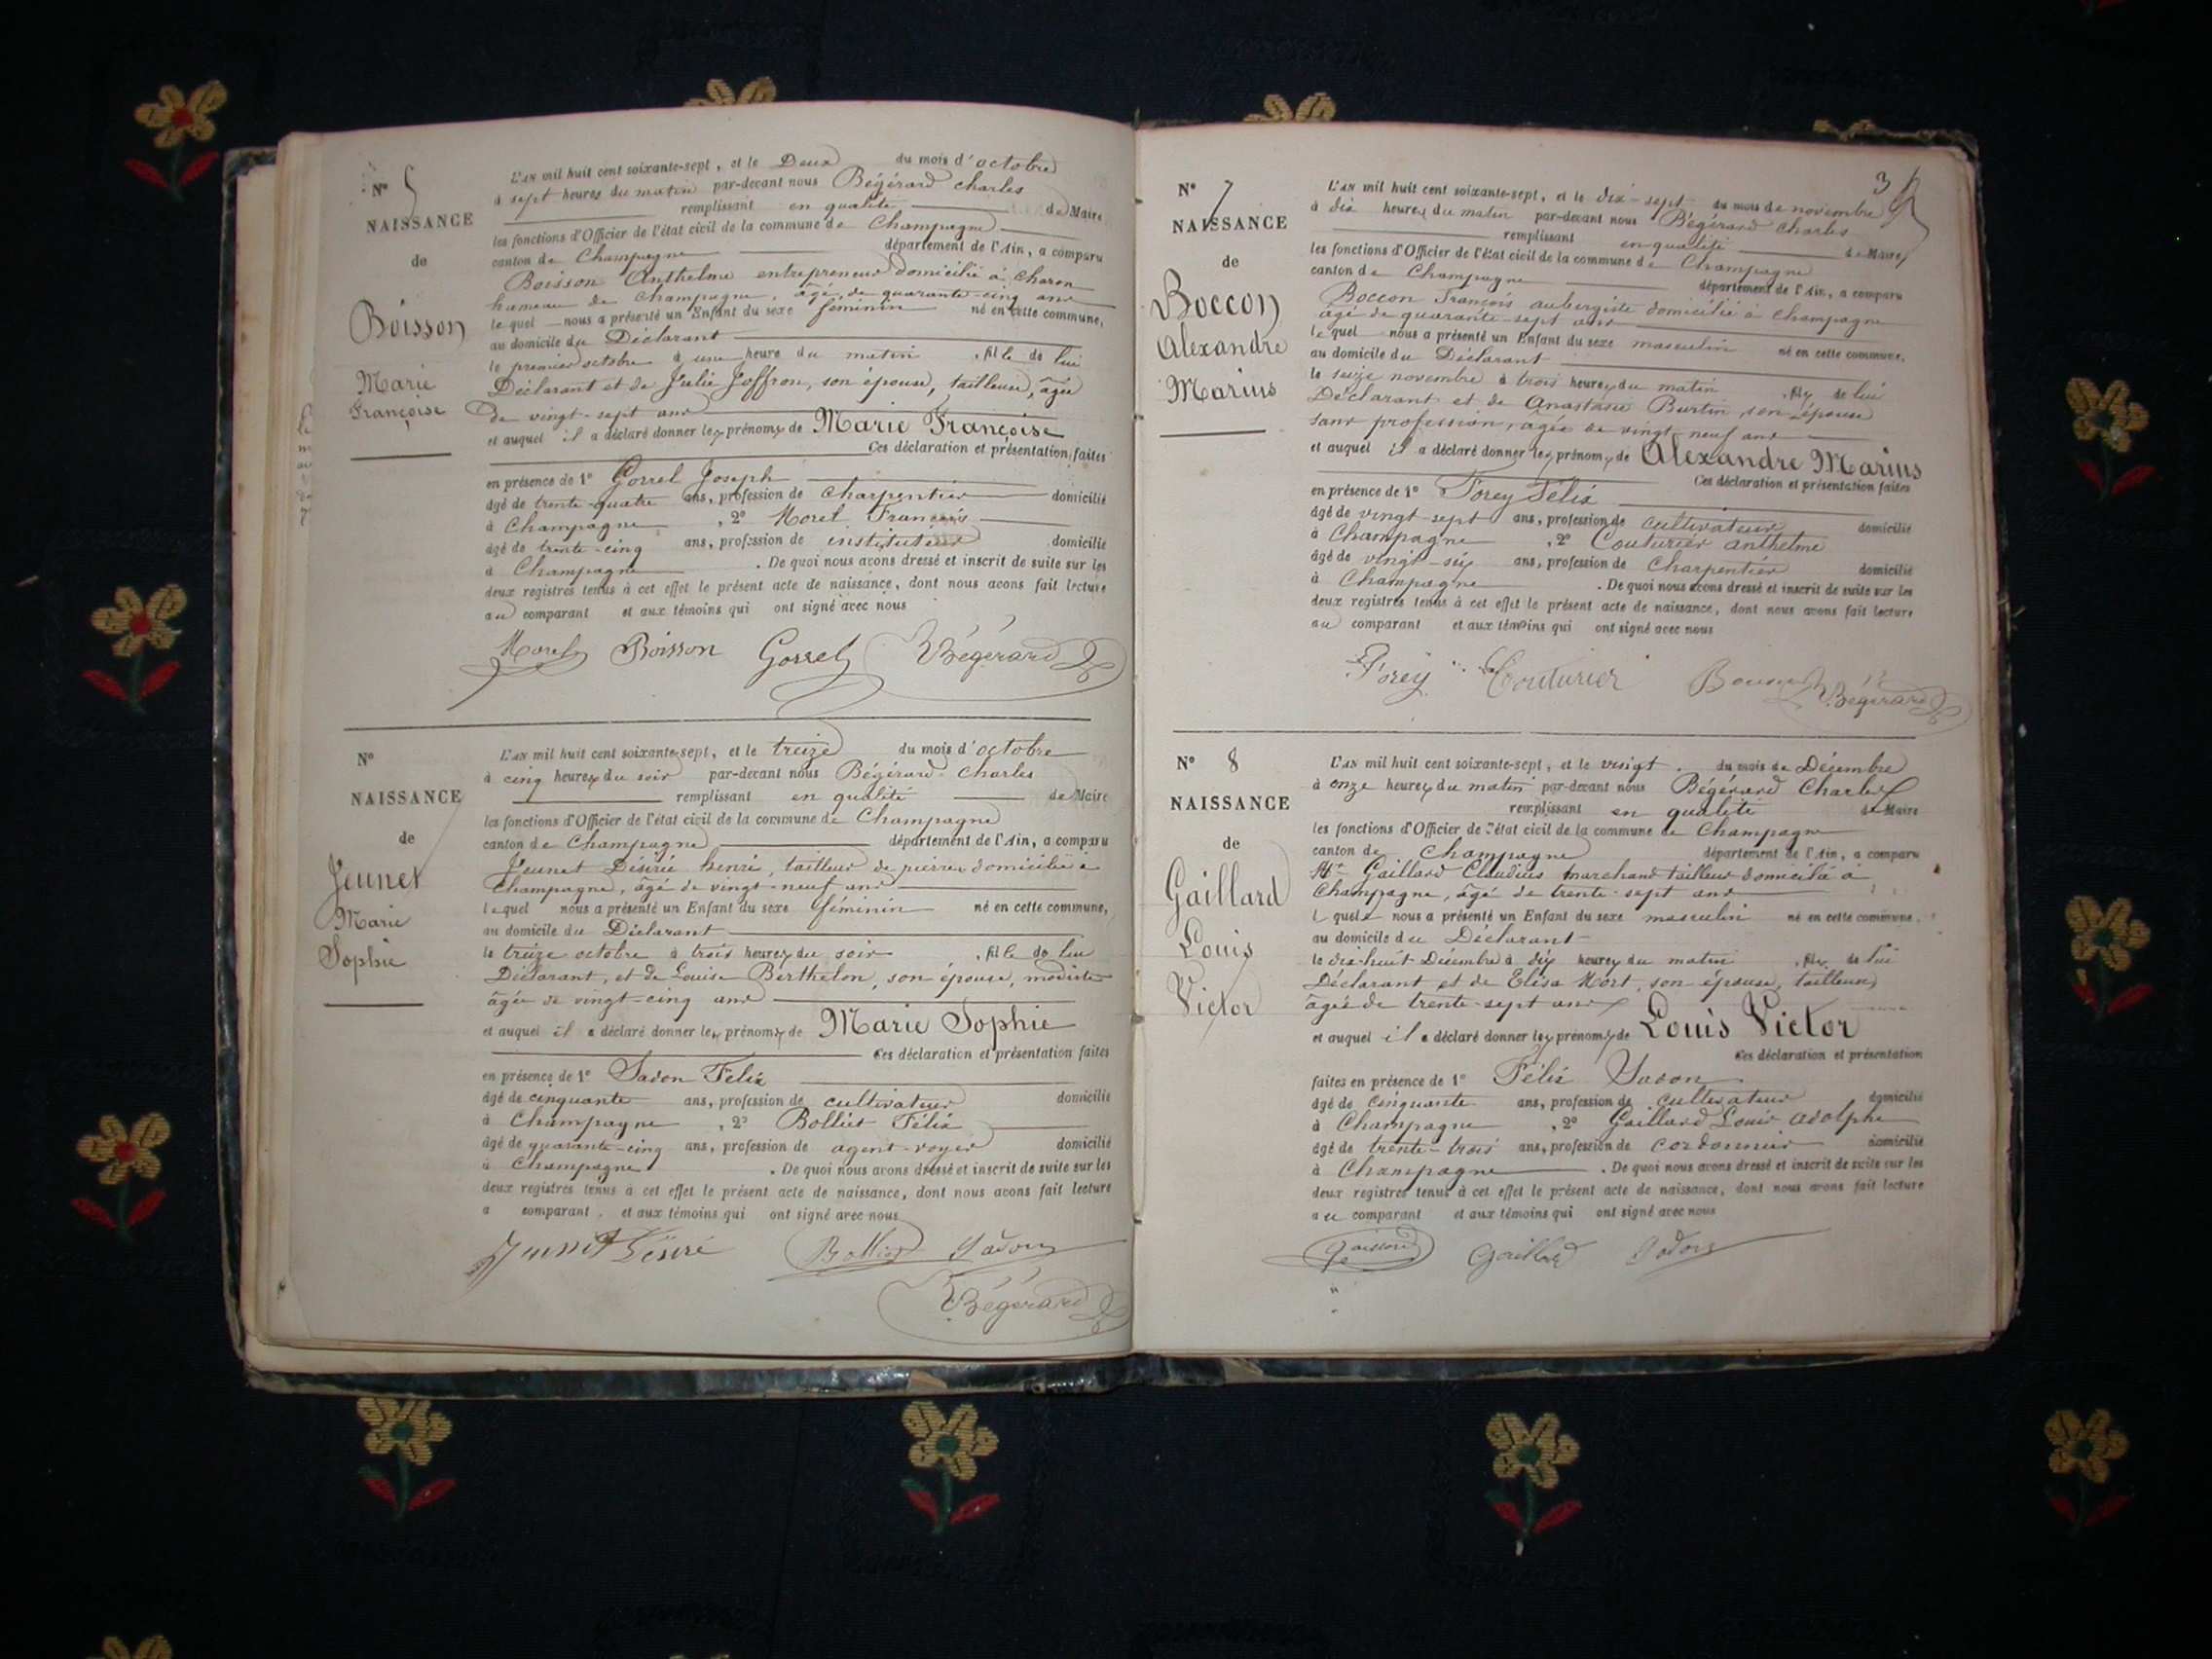 N° 5
NAISSANCE
de
Boisson
Marie
Françoise
L'AN mil huit cent soixante-sept, et le Deux du mois d'octobre
à sept heures du matin par-devant nous Bégérard Charles
remplissant en qualité de Maire
les fonctions d'Officier de l'état civil de la commune de Champagne
canton de Champagne département de l'Ain, a comparu
Boisson Anthelme entrepreneur domicilié à Charon
hameau de Champagne, âgé de quarante-cinq ans
lequel nous a présenté un Enfant du sexe féminin né en cette commune,
au domicile du Déclarant
le premier octobre à une heure du matin, fille de lui
Déclarant et de Julie Joffron, son épouse, tailleuse, âgée
de vingt-sept ans
et auquel il a déclaré donner les prénoms de Marie Françoise
Ces déclaration et présentation faites
en présence de 1° Gorrel Joseph
âgé de trente-quatre ans, profession de charpentier domicilié
à Champagne, 2° Morel François
âgé de trente-cinq ans, profession de instituteur domicilié
à Champagne. De quoi nous avons dressé et inscrit de suite sur les
deux registres tenus à cet effet le présent acte de naissance, dont nous avons fait lecture
au comparant et aux témoins qui ont signé avec nous
Morel Boisson Gorrel Bégérard
N°
NAISSANCE
de
Jeunet
Marie
Sophie
L'AN mil huit cent soixante-sept, et le treize du mois d'octobre
à cinq heures du soir par-devant nous Bégérard Charles
remplissant en qualité de Maire
les fonctions d'Officier de l'état civil de la commune de Champagne
canton de Champagne département de l'Ain, a comparu
Jeunet Désiré henri, tailleur de pierres domicilié à
Champagne, âgé de vingt-neuf ans
lequel nous a présenté un Enfant du sexe féminin né en cette commune,
au domicile du Déclarant
le treize octobre à trois heures du soir, fille de lui
Déclarant, et de Louise Berthelon, son épouse, modiste
âgée de vingt-cinq ans
et auquel il a déclaré donner les prénoms de Marie Sophie
Ces déclaration et présentation faites
en présence de 1° Savon Félix
âgé de cinquante ans, profession de cultivateur domicilié
à Champagne, 2° Bolliet Félix
âgé de quarante-cinq ans, profession de agent-voyer domicilié
à Champagne. De quoi nous avons dressé et inscrit de suite sur les
deux registres tenus à cet effet le présent acte de naissance, dont nous avons fait lecture
a comparant et aux témoins qui ont signé avec nous
Jeunet Désiré Bolliet Savon
Bégérard
3
N° 7
NAISSANCE
de
Boccon
Alexandre
Marius
L'AN mil huit cent soixante-sept, et le dix-sept du mois de novembre
à dix heures du matin par-devant nous Bégérard Charles
remplissant en qualité de Maire
les fonctions d'Officier de l'état civil de la commune de Champagne
canton de Champagne département de l'Ain, a comparu
Boccon François aubergiste domicilié à Champagne
âgé de quarante-sept ans
lequel nous a présenté un Enfant du sexe masculin né en cette commune,
au domicile du Déclarant
le seize novembre à trois heures du matin, fils de lui
Déclarant et de Anastasie Burtin, son épouse
sans profession, âgée de vingt-neuf ans
et auquel il a déclaré donner les prénoms de Alexandre Marius
Ces déclaration et présentation faites
en présence de 1° Forey Félix
âgé de vingt-sept ans, profession de cultivateur domicilié
à Champagne, 2° Couturier anthelme
âgé de vingt-six ans, profession de Charpentier domicilié
à Champagne. De quoi nous avons dressé et inscrit de suite sur les
deux registres tenus à cet effet le présent acte de naissance, dont nous avons fait lecture
au comparant et aux témoins qui ont signé avec nous
Forey Couturier Bégérard
N° 8
NAISSANCE
de
Gaillard
Louis
Victor
L'AN mil huit cent soixante-sept, et le vingt du mois de Décembre
à onze heures du matin par-devant nous Bégérard Charles
remplissant en qualité de Maire
les fonctions d'Officier de l'état civil de la commune de Champagne
canton de Champagne département de l'Ain, a comparu
Gaillard Claudius marchand tailleur domicilié à
Champagne, âgé de trente-sept ans
lequel nous a présenté un Enfant du sexe masculin né en cette commune,
au domicile du Déclarant
le dix-huit Décembre à dix heures du matin, fils de lui
Déclarant et de Elisa Mort, son épouse, tailleuse
âgée de trente-sept ans
et auquel il a déclaré donner les prénoms de Louis Victor
Ces déclaration et présentation
faites en présence de 1° Félix Savon
âgé de Cinquante ans, profession de Cultivateur domicilié
à Champagne, 2° Gaillard Louis adolphe
âgé de trente-trois ans, profession de cordonnier domicilié
à Champagne. De quoi nous avons dressé et inscrit de suite sur les
deux registres tenus à cet effet le présent acte de naissance, dont nous avons fait lecture
au comparant et aux témoins qui ont signé avec nous
Gaillard Gaillard Savon